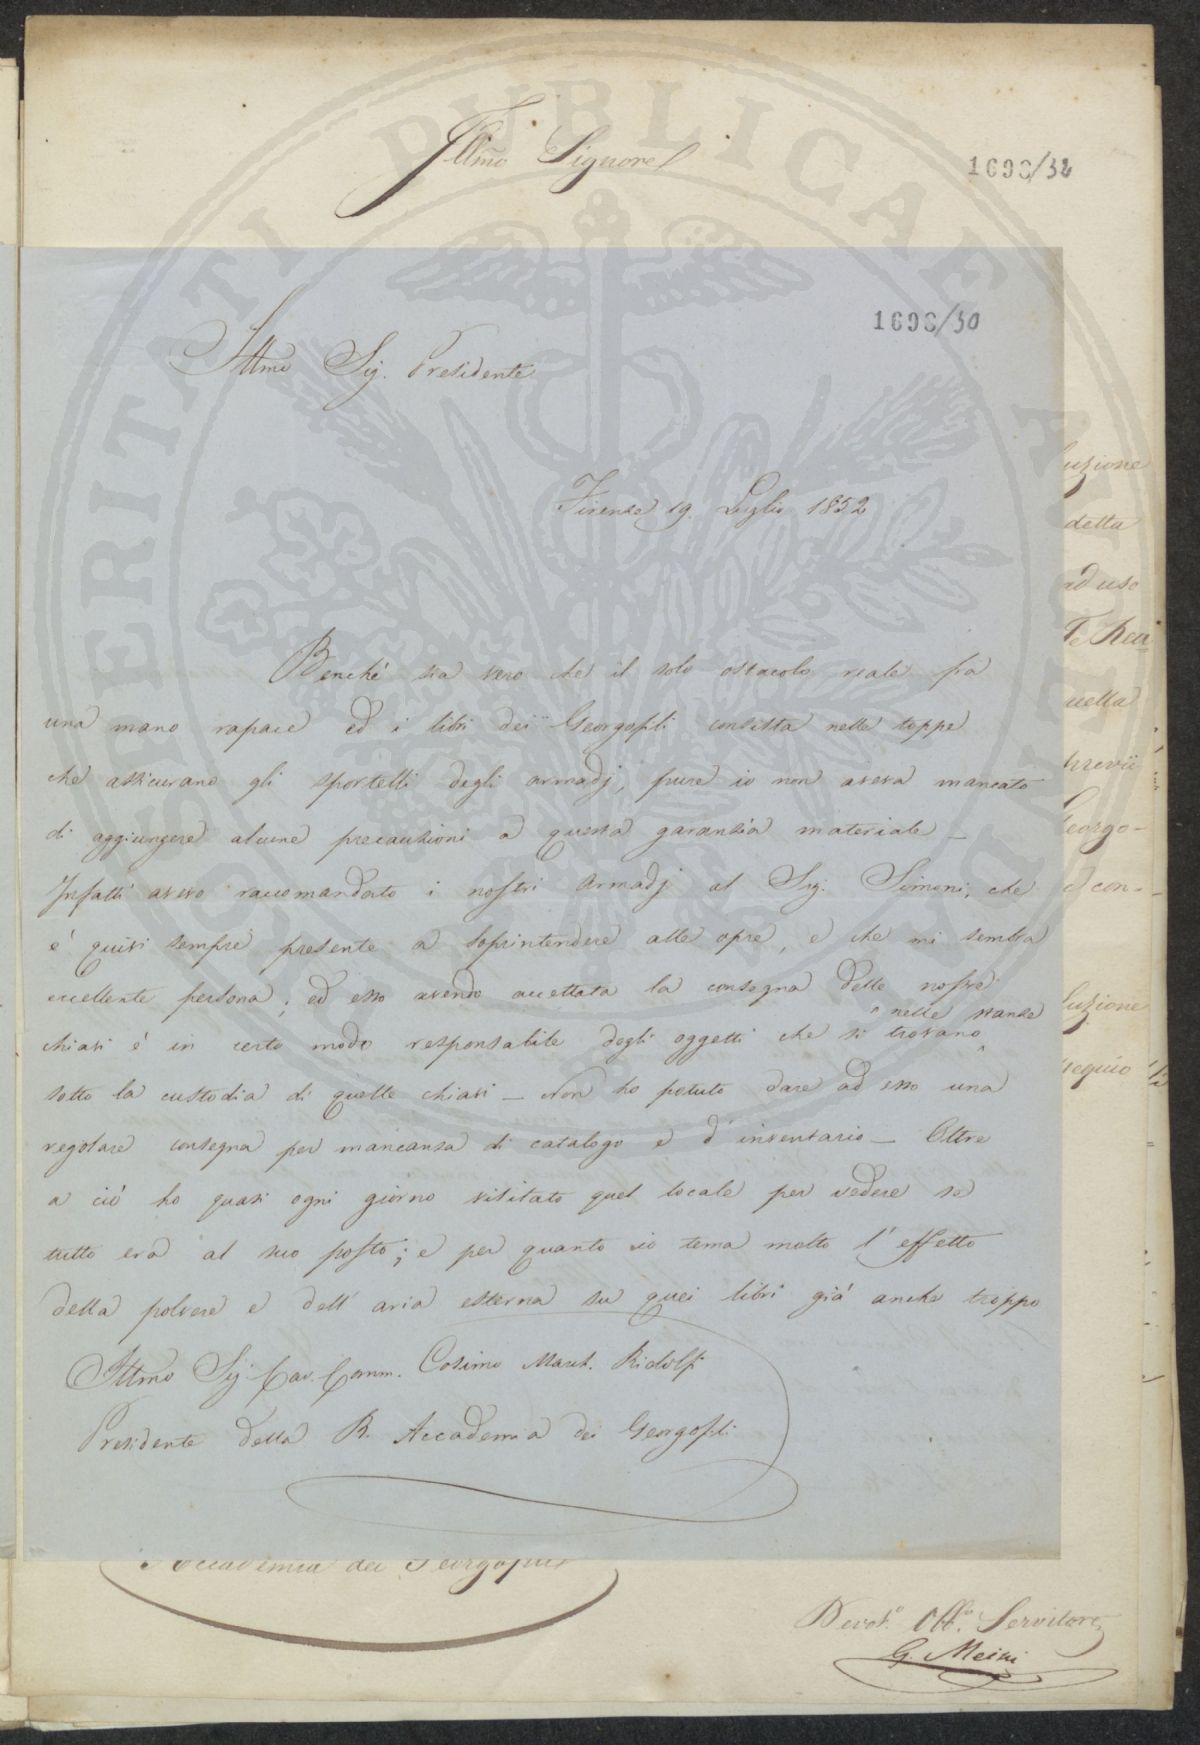 Illmo Signore
1698/32
1698/30
Illmo Sig. Presidente
Firenze 19. Luglio 1852
Benchè sia vero che il solo ostacolo reale fra
una mano rapace ed i libri dei Georgofili consista nelle toppe
che assicurano gli sportelli degli armadj, pure io non aveva mancato
di aggiungere alcune precauzioni a questa garanzia materiale —
Infatti avevo raccomandato i nostri armadj al Sig. Simoni, che
è quivi sempre presente a soprintendere alle opre, e che mi sembra
eccellente persona; ed esso avendo accettata la consegna delle nostre
chiavi è in certo modo responsabile degli oggetti che si trovano nelle stanze
sotto la custodia di quelle chiavi — Non ho potuto dare ad esso una
regolare consegna per mancanza di catalogo e d'inventario — Oltre
a ciò ho quasi ogni giorno visitato quel locale per vedere se
tutto era al suo posto; e per quanto io tema molto l'effetto
della polvere e dell'aria esterna su quei libri già anche troppo
Illmo Sig. Cav. Comm. Cosimo March. Ridolfi
Presidente della R. Accademia dei Georgofili
uzione
detta
ad uso
uella
previi
Georgo-
e con-
uzione
sequio
Accademia dei Georgofili
Devot.o Obb.o Servitore
G. Meini
PROSPERITATI PUBLICAE AUGENDAE